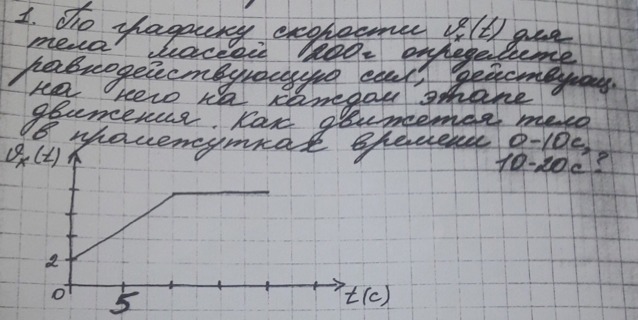 1. По графику скорости υₓ(t) для
тела массой 200г определите
равнодействующую сил, действующ.
на него на каждом этапе
движения. Как движется тело
в промежутках времени 0-10с,
10-20с?
υₓ(t)
2
0
5
t(c)